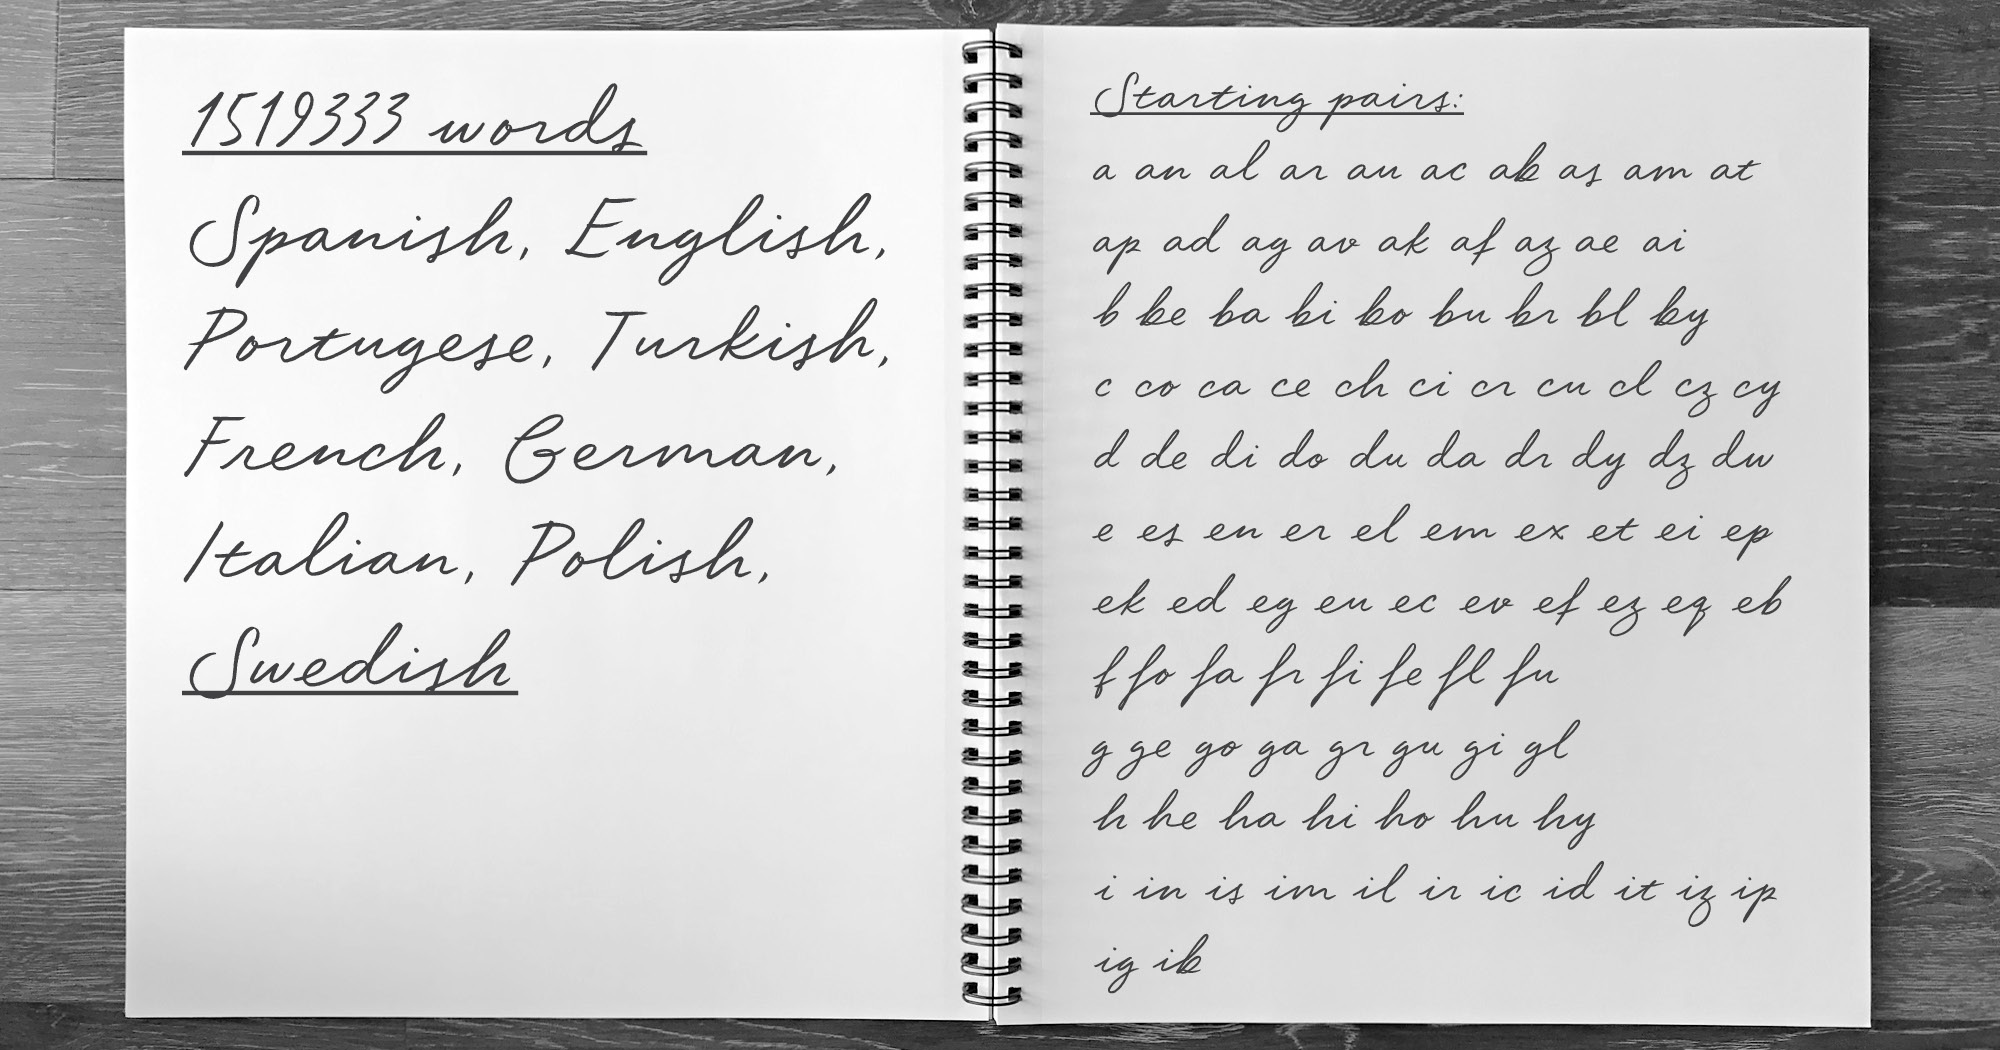 1519333 words
Spanish, English,
Portugese, Turkish,
French, German,
Italian, Polish,
Swedish
Starting pairs:
a an al ar au ac ab as am at
ap ad ag av ak af az ae ai
b be ba bi bo bu br bl by
c co ca ce ch ci cr cu cl cz cy
d de di do du da dr dy dz dw
e es en er el em ex et ei ep
ek ed eg eu ec ev ef ez eq eb
f fo fa fr fi fe fl fu
g ge go ga gr gu gi gl
h he ha hi ho hu hy
i in is im il ir ic id it iz ip
ig ib